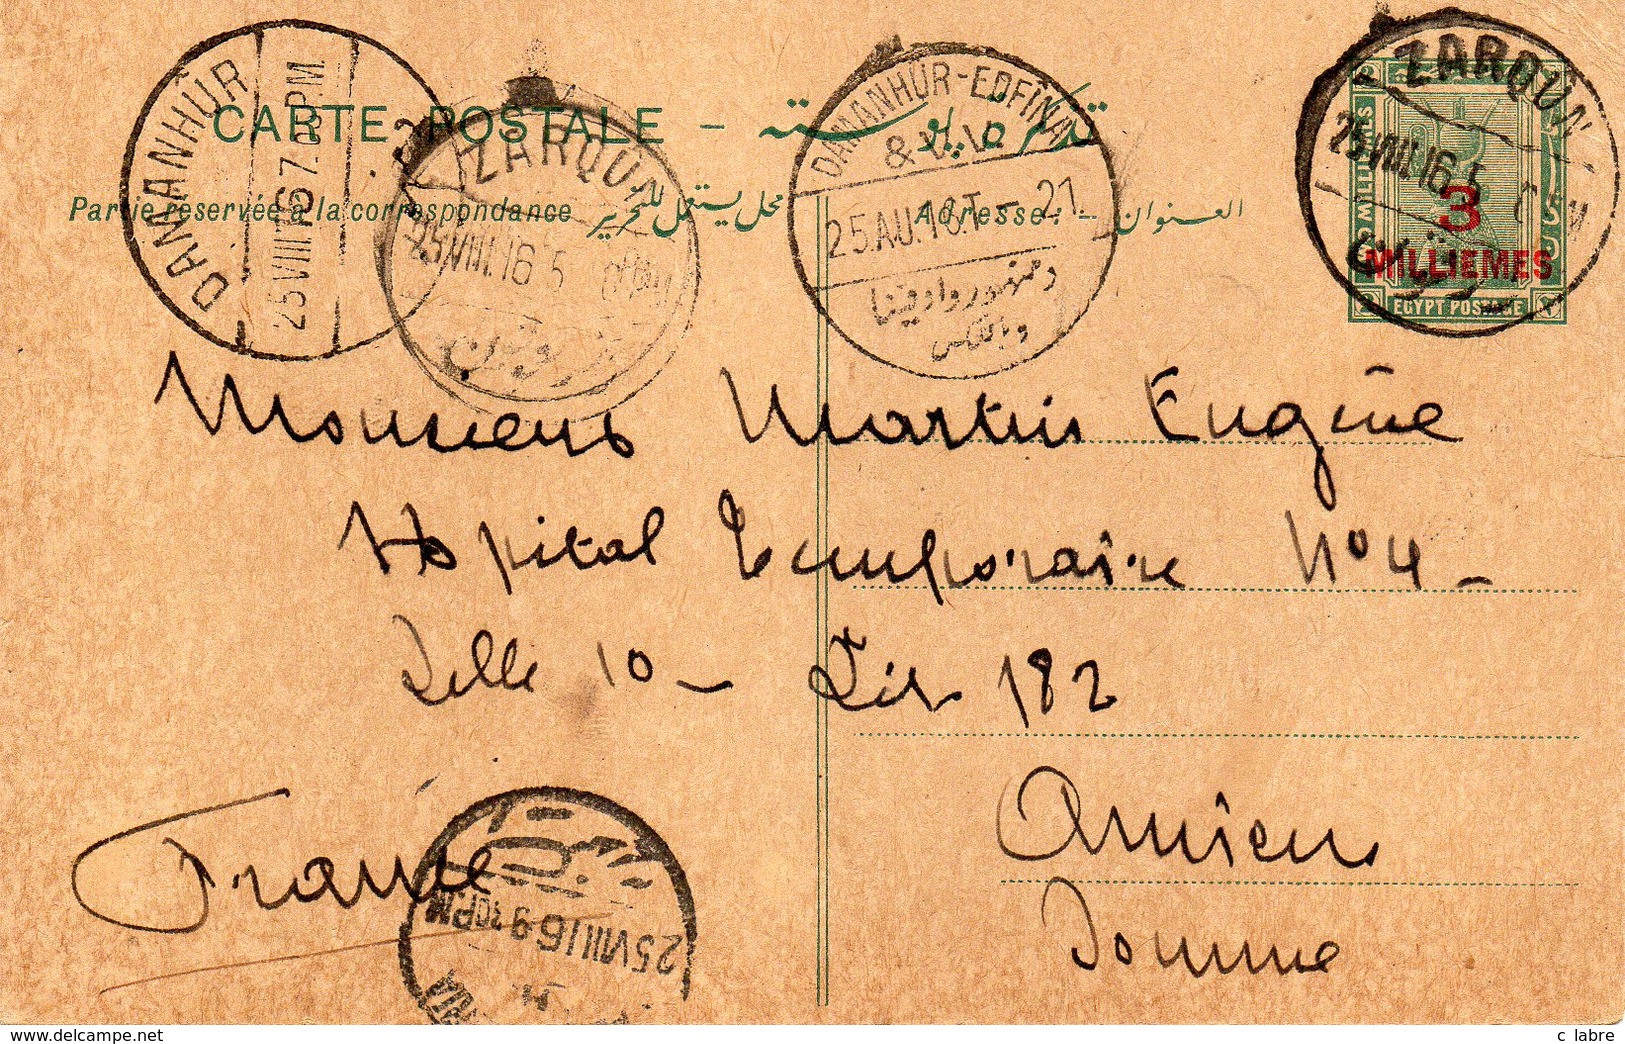 CARTE POSTALE - تذكرة بوسته
Partie réservée à la correspondance محل يستعمل للتحرير
Adresse: - العنوان
DAMANHÛR
25 VIII 16 7.0 PM
ZARQÛN
25 VIII 16 5
زرقون
DAMANHÛR-EDFINA
& V.V.
25.AU.16.T- 21.
دمنهور وادفينا
وبالعكس
ZARQÛN
25 VIII 16 5
3
MILLIEMES
3 MILLIEMES
EGYPT POSTAGE
Monsieur Martin Eugène
Hôpital Temporaire N° 4 -
Salle 10 - Lit 182
Amiens
Somme
France
25 VIII 16 9 30 PM
c labre